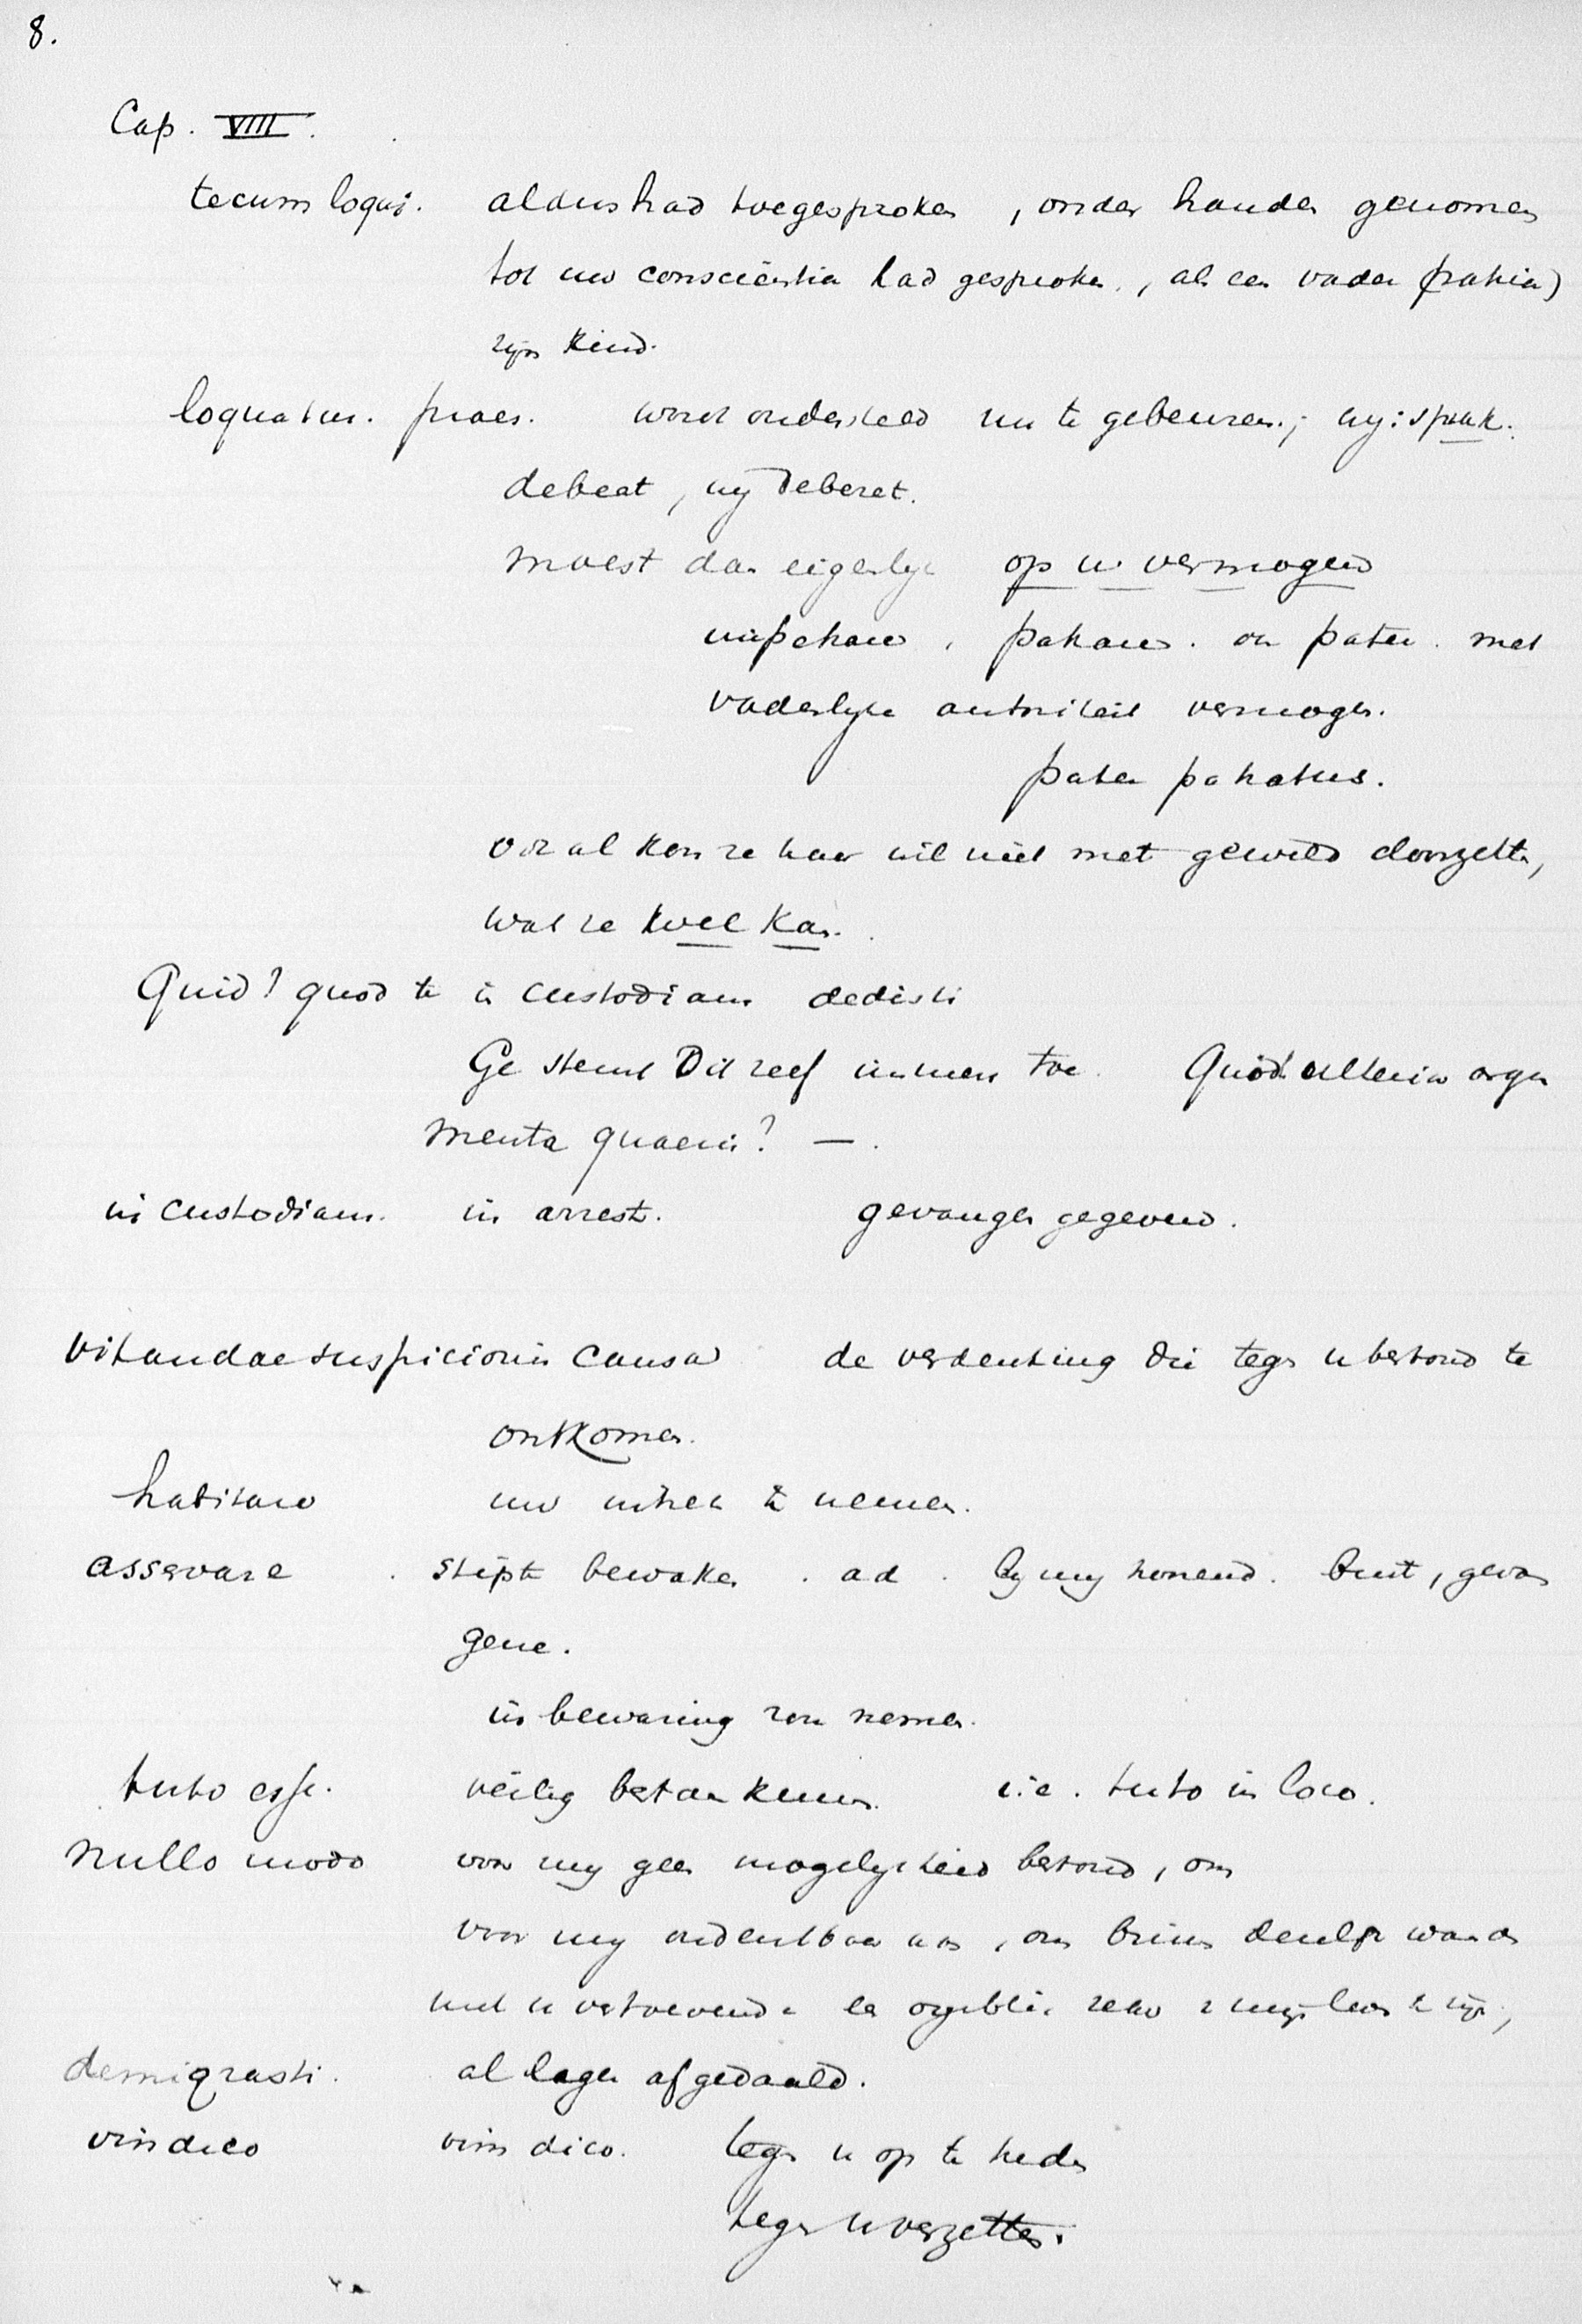 8.
Cap. VIII.
tecum loqui. aldus had toegesproken, onder handen genomen
tot uw conscientia had gesproken, als een vader (patria)
zijn kind.
loquatur. praes. word ondersteld nu te gebeuren; wij: sprak.
debeat, wij deberet.
moest dan eigenlijk op uw vermogend
impetrare, patrare. van pater. met
vaderlijke autoriteit vermogen.
pater patratus.
ooral kon ze haar wil niet met geweld doorzetten,
wat ze wel kan.
Quid? quod te in custodiam dedisti
Ge stemt Dit zelf immers toe. Quid? alterius argu
menta quaeris? —.
in custodiam. in arrest. gevangen gegeven.
vitandae suspicionis causa de verdenking die tegen u bestond te
ontkomen.
habitare uw intrek te nemen.
asservare stipte bewaken. ad. bij mij honend. buit, gevan
gene.
in bewaring zou nemen.
tuto esse. veilig bestaan kunnen. i.e. tuto in loco.
nullo modo voor mij geen mogelijkheid bestond, om
voor mij ondenkbaar was, om binnen dezelfde wanden
met u vertoevende en ogenblik zeker van mijn leven te zijn,
demigrasti. al lager afgedaald.
vindico vim dico. tegen u op te treden
tegen u verzetten.